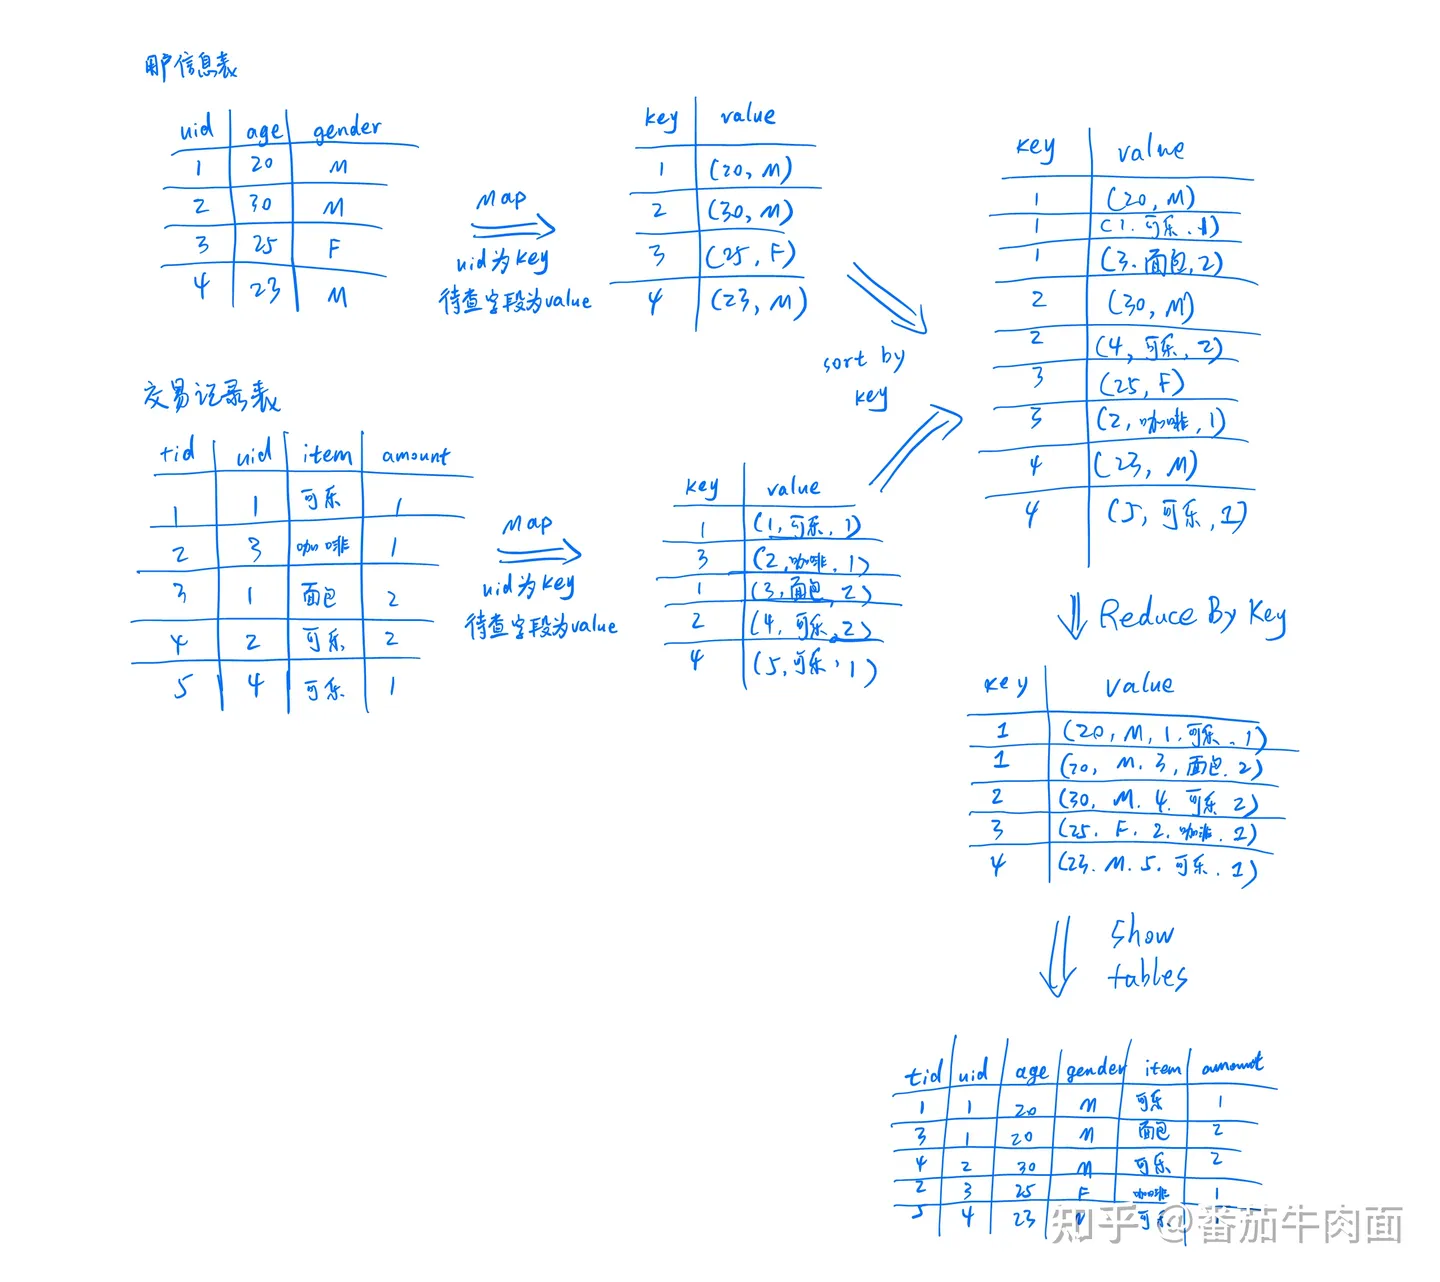 用户信息表
uid age gender
1 20 M
2 30 M
3 25 F
4 23 M
Map
uid为key
待查字段为value
key value
1 (20, M)
2 (30, M)
3 (25, F)
4 (23, M)
交易记录表
tid uid item amount
1 1 可乐 1
2 3 咖啡 1
3 1 面包 2
4 2 可乐 2
5 4 可乐 1
Map
uid为key
待查字段为value
key value
1 (1, 可乐, 1)
3 (2, 咖啡, 1)
1 (3, 面包, 2)
2 (4, 可乐, 2)
4 (5, 可乐, 1)
sort by
key
key value
1 (20, M)
1 (1, 可乐, 1)
1 (3, 面包, 2)
2 (30, M)
2 (4, 可乐, 2)
3 (25, F)
3 (2, 咖啡, 1)
4 (23, M)
4 (5, 可乐, 1)
Reduce By Key
key value
1 (20, M, 1, 可乐, 1)
1 (20, M, 3, 面包, 2)
2 (30, M, 4, 可乐 2)
3 (25, F, 2, 咖啡, 1)
4 (23, M, 5, 可乐, 1)
show
tables
tid uid age gender item amount
1 1 20 M 可乐 1
3 1 20 M 面包 2
4 2 30 M 可乐 2
2 3 25 F 咖啡 1
5 4 23 可乐
知乎 @番茄牛肉面